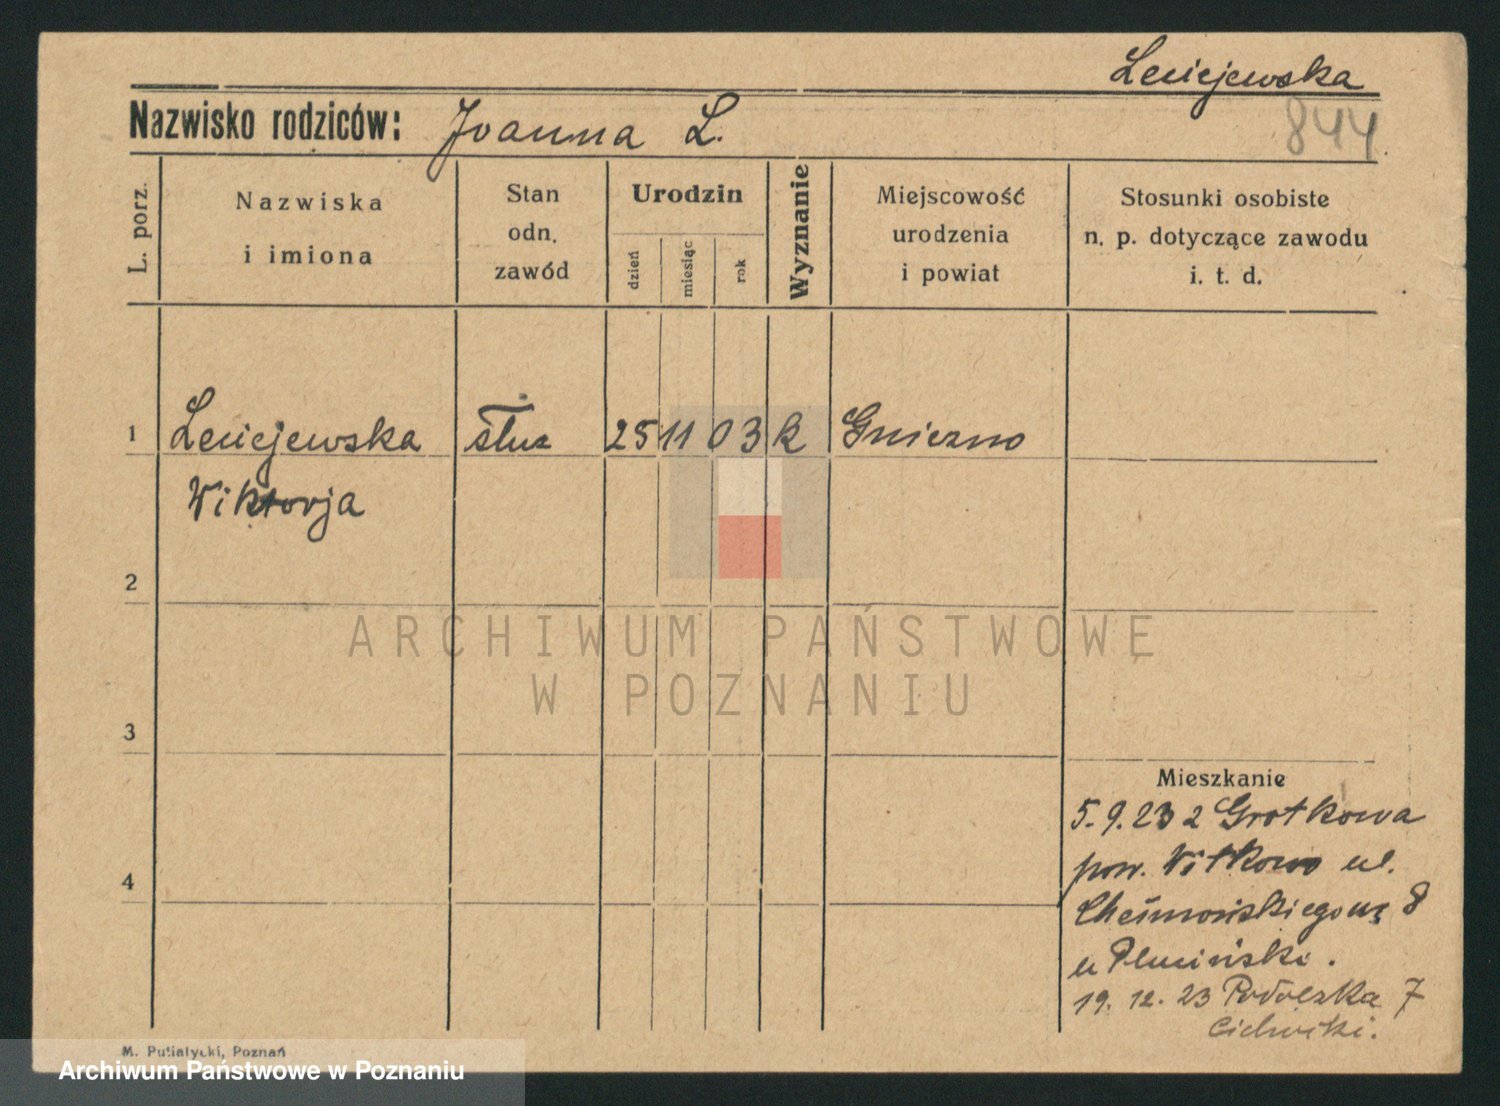 Leciejewska
844
Nazwisko rodziców: Joanna L.
L. porz.
Nazwiska
i imiona
Stan
odn.
zawód
Urodzin
dzień
miesiąc
rok
Wyznanie
Miejscowość
urodzenia
i powiat
Stosunki osobiste
n. p. dotyczące zawodu
i. t. d.
1 Leciejewska służ 25 11 03 k Gniezno
Wiktorja
2
ARCHIWUM PAŃSTWOWE
W POZNANIU
3
Mieszkanie
5.9.23 z Grotkowa
pow. Witkowo ul.
4
Chełmońskiego 8
u Pluciński.
19.12.23 7
Cichocki.
M. Putiatycki, Poznań
Archiwum Państwowe w Poznaniu